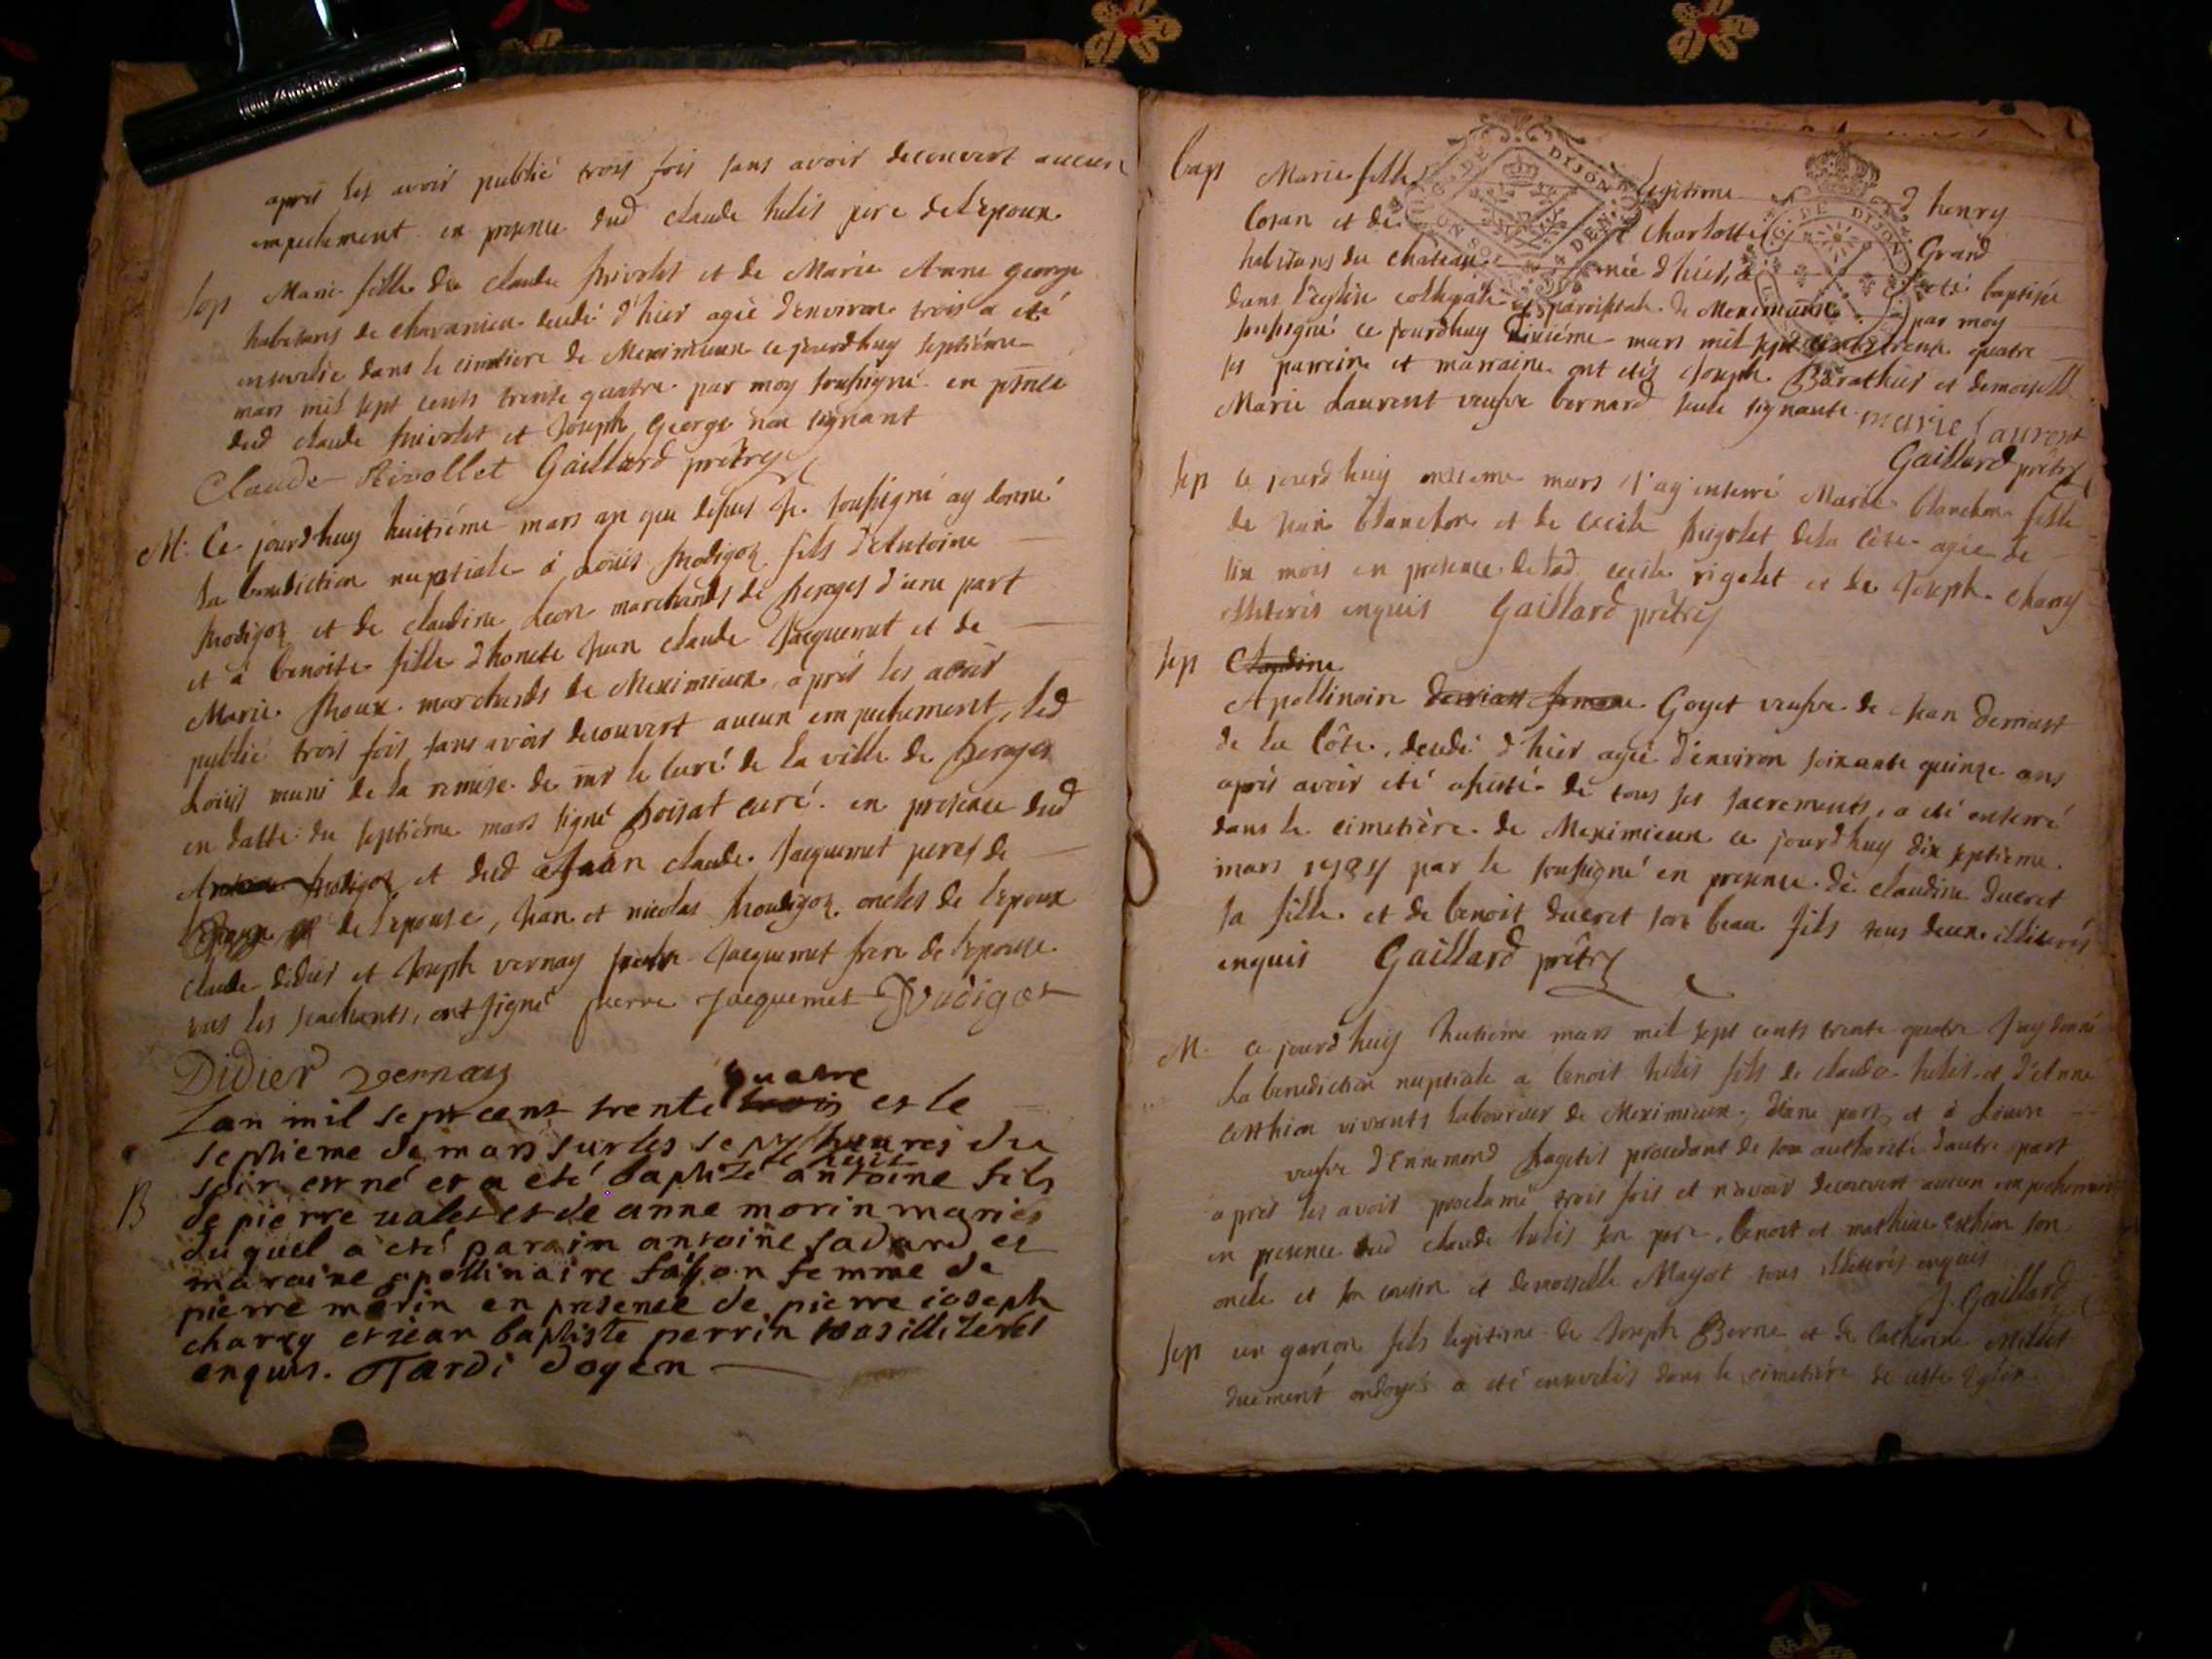 apres les avoir publié trois fois sans avoir decouvert aucun
empechement en presence dud claude helis pere de l'epoux
sep Marie fille de claude Rivolet et de Marie Anne george
habitans de chavanieu decedé d'hier agée d'environ trois a eté
ensevelie dans le cimetiere de Meximieux ce jourdhuy septiéme
mars mil sept cents trente quatre par moy soussigné en pnce
dud claude Rivolet et Joseph George non signant
Claude Rivollet Gaillard prêtre
M. Ce jourdhuy huitiéme mars an que dessus je soussigné ay donné
la benediction nuptiale à Loüis Rodigoz fils d'Antoine
Rodigoz et de claudine Leon marchands de peroges d'une part
et à benoite fille d'honete Jean claude Jacquemet et de
Marie Roux marchands de Meximieux après les avoir
publié trois fois sans avoir decouvert aucun empechement, led
Loüis muni de la remise de mr le curé de la ville de peroges
en datte du septiéme mars signé poisat curé en presence dud
Antoine Rodigoz et dud Jean claude Jacquemet peres de
de l'epouse, Jean et nicolas Roudigoz oncles de l'epoux
claude didier et Joseph vernay pierre Jacquemet frere de l'epouse
tous les scachants, ont signé pierre Jacquemet Rudigoz
Didier vernay
Lan mil sept cent trente trois quatre et le
septieme de mars sur les sept heures du
soir est né et a eté baptizé le neuf antoine fils
B de pierre valet et de anne morin mariés
du quel a eté parain antoine sadard et
maraine apollinaire falson femme de
pierre morin en presence de pierre ioseph
charvy et iean baptiste perrin tous illiterés
enquis. Tardi doyen
bap Marie fille legitime d henry
Cosan et de Charlotte Grand
habitans du chateau née d'hier, a eté baptisée
dans l'eglise collegiale et paroissiale de Meximieux par moy
soussigné ce jourdhuy dixiéme mars mil sept cents trente quatre
les parrein et marraine ont etés Joseph Barathier et demoiselle
Marie Laurent veufve bernard seule signante marie Laurent
Gaillard prêtre
sep ce jourd huy onzieme mars j'ay enterré Marie blanchon fille
de Jean blanchon et de cecile Rigolet de la Côte agée de
six mois en presence de lad. cecile rigolet et de Joseph charvy
illiterés enquis Gaillard prêtre
sep Claudine
Apollinaire derriast femme Goyet veufve de Jean derriast
de la Côte, decedé d'hier agée d'environ soixante quinze ans
après avoir eté assisté de tous ses sacrements, a eté enterré
dans le cimetière de Meximieux ce jourdhuy dix septieme
mars 1734 par le soussigné en presence de claudine ducret
sa fille et de benoit ducret son beau fils tous deux illiterés
enquis Gaillard prêtre
M. ce jourd huy huitieme mars mil sept cents trente quatre J'ay donné
la benediction nuptiale a benoit helis fils de claude helis et d'Anne
vivants laboureur de Meximieux, d'une part, et à Loüise
veufve d'Ennemond pagetet procedant de son authorité d'autre part
apres les avoir proclamé trois fois et n'avoir decouvert aucun empechement
en presence dud claude helis son pere, benoit et mathieu Esthion son
oncle et son cousin et demoiselle Mayot tous illiterés enquis
J. Gaillard
sep un garcon fils legitime de Joseph Berne et de Catherine Millet
duement ondoyé a eté enseveli dans le cimetiére de cette Eglise